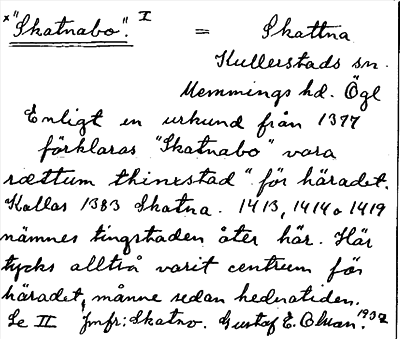 x "Skatnabo". I = Skattna
Kullerstads sn.
Memmings hd. Ögl
Enligt en urkund från 1377
förklaras "Skatnabo" vara
rættum thinxstad" för häradet.
Kallas 1383 Skatna. 1413, 1414 o 1419
nämnes tingstaden åter här. Här
tycks alltså varit centrum för
häradet, månne sedan hednatiden.
Se II Jmfr: Skatno. Gustaf E. Olsson. 1932